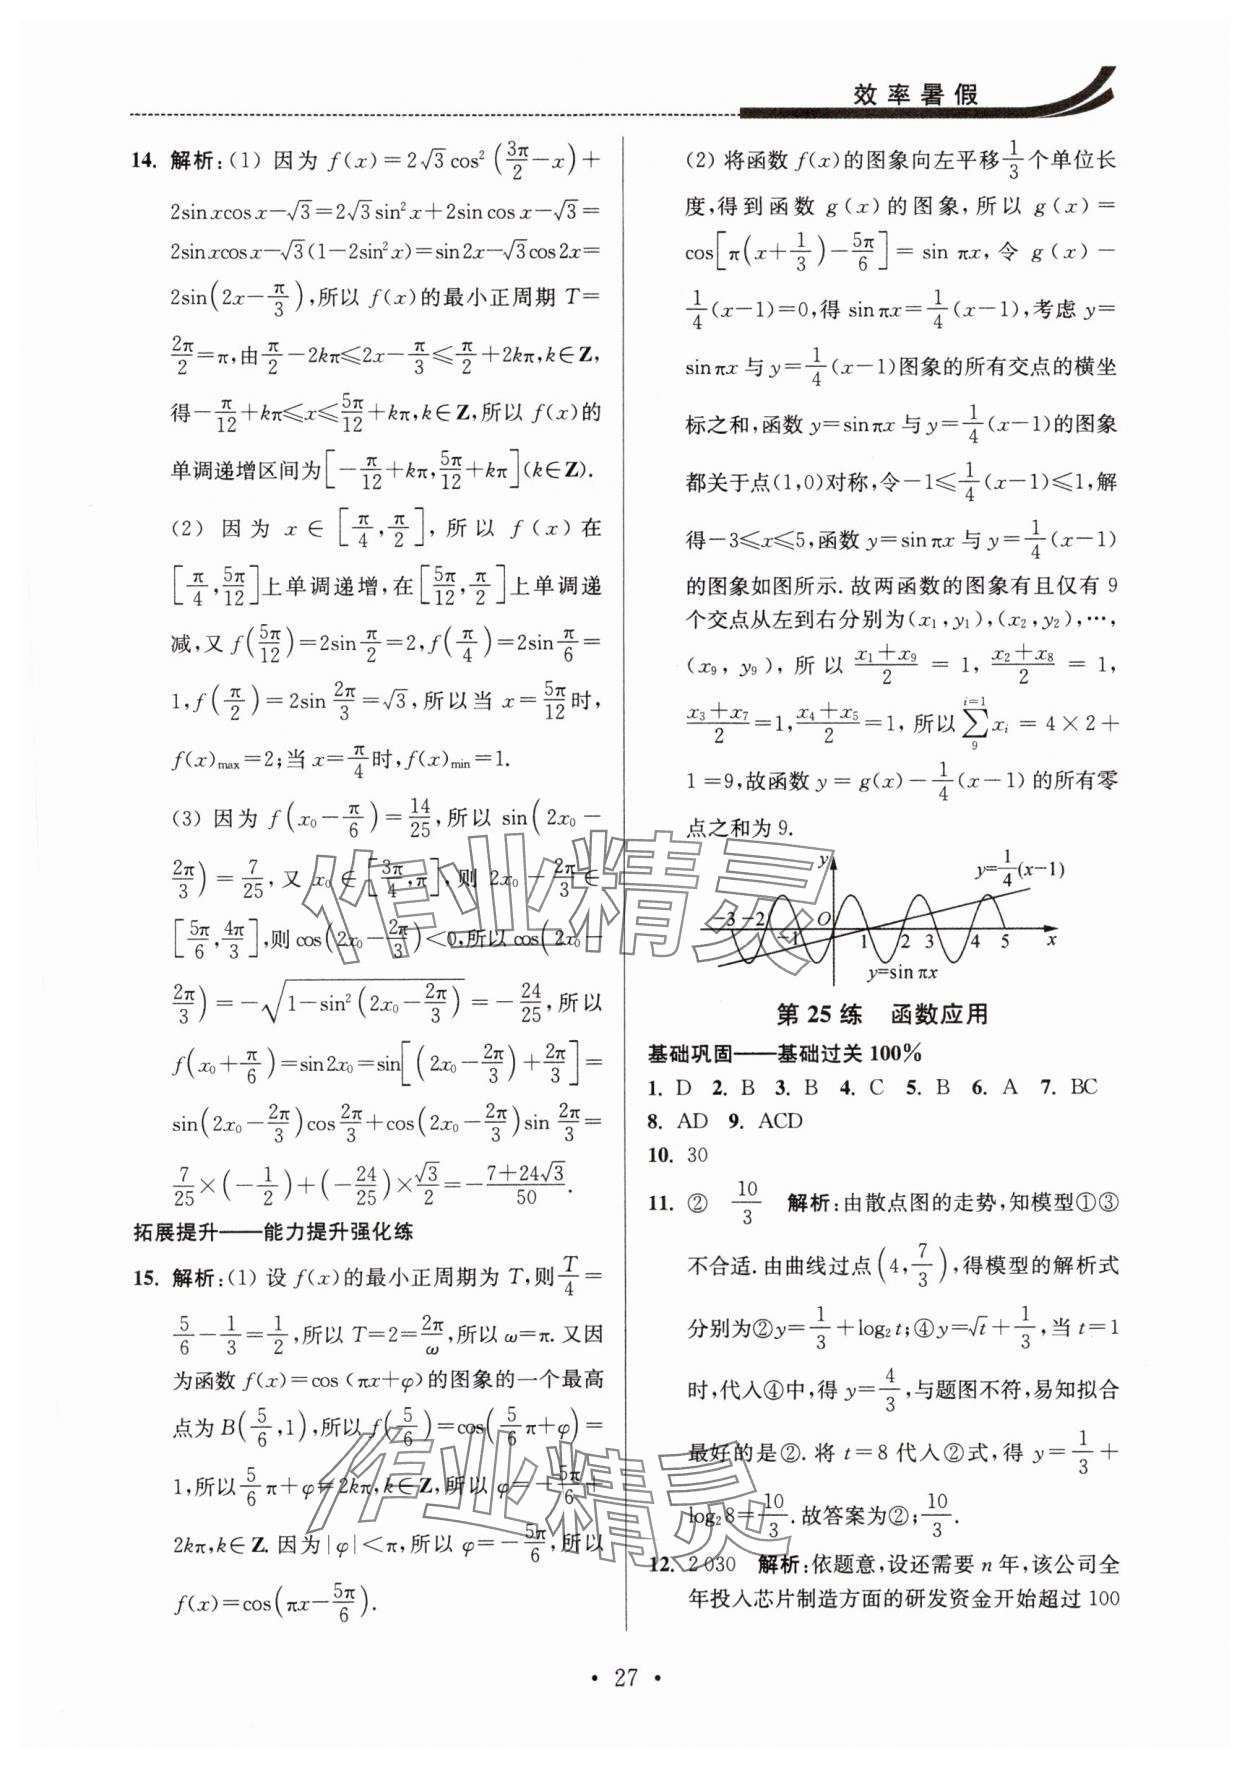 效率暑假
14. 解析:(1) 因为 f(x)=2√3cos²(3π/2−x)+
2sinxcosx−√3=2√3sin²x+2sin cosx−√3=
2sinxcosx−√3(1−2sin²x)=sin2x−√3cos2x=
2sin(2x−π/3),所以 f(x)的最小正周期 T=
2π/2=π,由π/2−2kπ≤2x−π/3≤π/2+2kπ,k∈Z,
得−π/12+kπ≤x≤5π/12+kπ,k∈Z,所以 f(x)的
单调递增区间为[−π/12+kπ,5π/12+kπ](k∈Z).
(2) 因为 x∈[π/4,π/2],所以 f(x)在
[π/4,5π/12]上单调递增,在[5π/12,π/2]上单调递
减,又 f(5π/12)=2sinπ/2=2,f(π/4)=2sinπ/6=
1,f(π/2)=2sin2π/3=√3,所以当 x=5π/12时,
f(x)max=2;当 x=π/4时,f(x)min=1.
(3) 因为 f(x₀−π/6)=14/25,所以 sin(2x₀−
2π/3)=7/25,又 x₀∈[3π/4,π],则 2x₀−2π/3∈
[5π/6,4π/3],则 cos(2x₀−2π/3)<0,所以 cos(2x₀−
2π/3)=−√(1−sin²(2x₀−2π/3))=−24/25,所以
f(x₀+π/6)=sin2x₀=sin[(2x₀−2π/3)+2π/3]=
sin(2x₀−2π/3)cos2π/3+cos(2x₀−2π/3)sin2π/3=
7/25×(−1/2)+(−24/25)×√3/2=−(7+24√3)/50.
拓展提升——能力提升强化练
15. 解析:(1) 设 f(x)的最小正周期为 T,则T/4=
5/6−1/3=1/2,所以 T=2=2π/ω,所以 ω=π. 又因
为函数 f(x)=cos (πx+φ)的图象的一个最高
点为 B(5/6,1),所以 f(5/6)=cos(5/6π+φ)=
1,所以5/6π+φ=2kπ,k∈Z,所以 φ=−5π/6+
2kπ,k∈Z. 因为|φ|<π,所以 φ=−5π/6,所以
f(x)=cos(πx−5π/6).
(2) 将函数 f(x)的图象向左平移1/3个单位长
度,得到函数 g(x)的图象,所以 g(x)=
cos[π(x+1/3)−5π/6]=sin πx,令 g(x)−
1/4(x−1)=0,得 sinπx=1/4(x−1),考虑 y=
sinπx 与 y=1/4(x−1)图象的所有交点的横坐
标之和,函数 y=sinπx 与 y=1/4(x−1)的图象
都关于点(1,0)对称,令−1≤1/4(x−1)≤1,解
得−3≤x≤5,函数 y=sinπx 与 y=1/4(x−1)
的图象如图所示. 故两函数的图象有且仅有 9
个交点从左到右分别为(x₁,y₁),(x₂,y₂),…,
(x₉,y₉),所以 (x₁+x₉)/2=1,(x₂+x₈)/2=1,
(x₃+x₇)/2=1,(x₄+x₅)/2=1,所以 ∑(i=1 上, 9 下) xᵢ=4×2+
1=9,故函数 y=g(x)−1/4(x−1)的所有零
点之和为 9.
y
y=1/4(x−1)
−3 −2 −1 O 1 2 3 4 5 x
y=sin πx
第 25 练 函数应用
基础巩固——基础过关 100%
1. D 2. B 3. B 4. C 5. B 6. A 7. BC
8. AD 9. ACD
10. 30
11. ② 10/3 解析:由散点图的走势,知模型①③
不合适. 由曲线过点(4,7/3),得模型的解析式
分别为②y=1/3+log₂t;④y=√t+1/3,当 t=1
时,代入④中,得 y=4/3,与题图不符,易知拟合
最好的是②. 将 t=8 代入②式,得 y=1/3+
log₂8=10/3. 故答案为②;10/3.
12. 2 030 解析:依题意,设还需要 n 年,该公司全
年投入芯片制造方面的研发资金开始超过 100
• 27 •
作业精灵
作业精灵